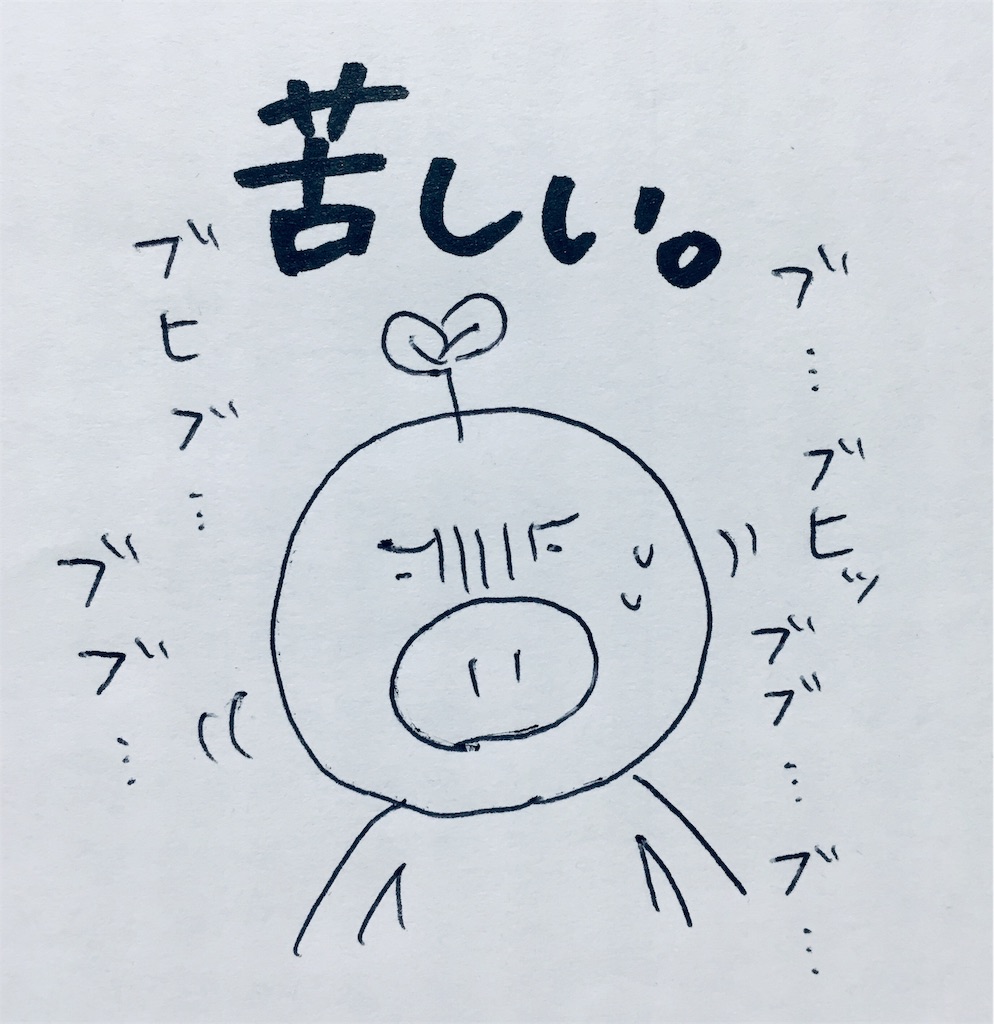 苦しい。
ブヒブ…
ブブ…
ブ…
ブヒッ
ブブ…
ブ…